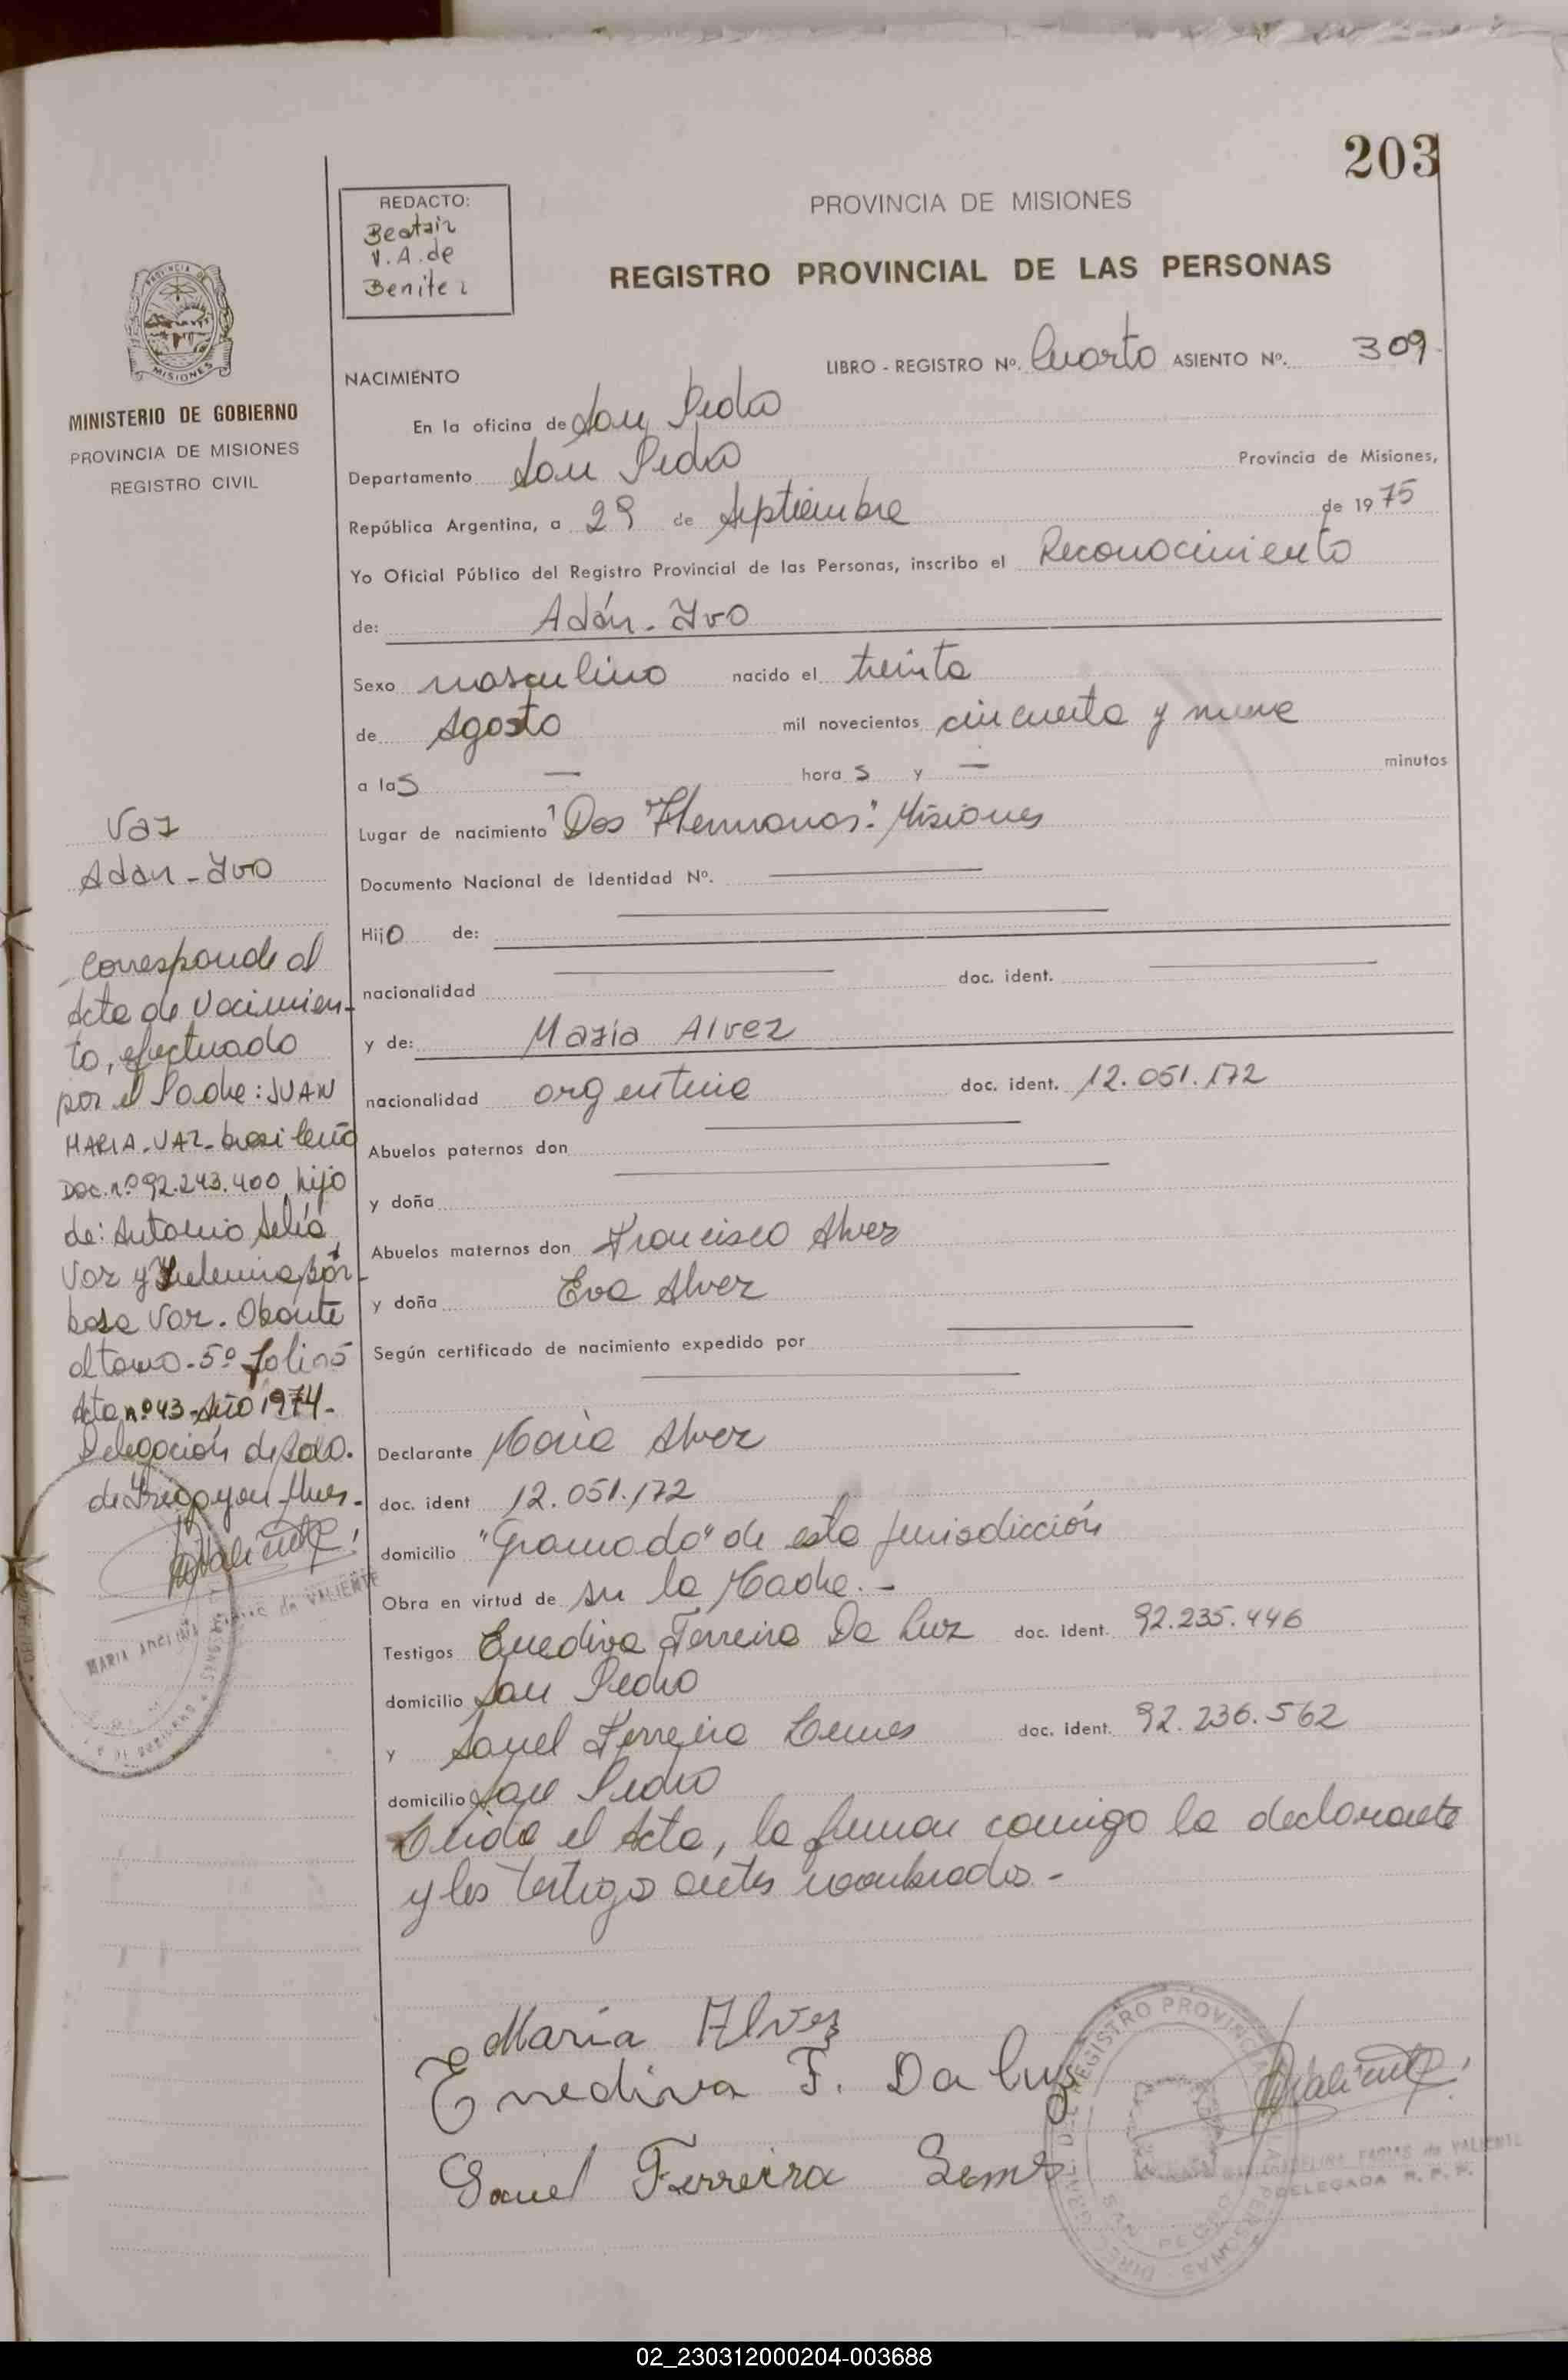 203
REDACTO:
Beatriz
V. A. de
Benitez
PROVINCIA DE MISIONES
REGISTRO PROVINCIAL DE LAS PERSONAS
PROVINCIA DE
MISIONES
MINISTERIO DE GOBIERNO
PROVINCIA DE MISIONES
REGISTRO CIVIL
NACIMIENTO
LIBRO - REGISTRO Nº. Cuarto ASIENTO Nº. 309
En la oficina de San Pedro
Departamento San Pedro Provincia de Misiones,
República Argentina, a 29 de Septiembre de 1975
Yo Oficial Público del Registro Provincial de las Personas, inscribo el Reconocimiento
de: Adán - Ivo
Sexo masculino nacido el treinta
de Agosto mil novecientos cincuenta y nueve
a las — horas y — minutos
Lugar de nacimiento "Dos Hermanos": Misiones
Documento Nacional de Identidad Nº.
Hijo de:
nacionalidad doc. ident.
y de: María Alvez
nacionalidad argentina doc. ident. 12.051.172
Abuelos paternos don
y doña
Abuelos maternos don Francisco Alvez
y doña Eva Alvez
Según certificado de nacimiento expedido por
Declarante María Alvez
doc. ident 12.051.172
domicilio "Gramado" de esta jurisdicción
Obra en virtud de su la Madre. -
Testigos Enediva Ferreira Da Luz doc. ident. 92.235.446
domicilio San Pedro
y Sauel Ferreira Lemes doc. ident. 92.236.562
domicilio San Pedro
Leida el Acta, la firman conmigo la declarante
y los testigos antes nombrados -
Vaz
Adan - Ivo
Corresponde al
Acta de Nacimien-
to, efectuado
por el Padre: JUAN
MARIA - VAZ - brasileño
Doc. nº 92.243.400 hijo
de: Antonio
Vaz y Bar-
bosa Vaz. Obrante
al tomo - 5º folio 5
Acta nº 43 - Año 1974 -
Delegación de Bdo.
de Irigoyen - Mnes. -
MARIA de VALIENTE
María Alvez
Enediva F. Da luz
Sauel Ferreira Lemes
REGISTRO PROVINCIAL DE LAS PERSONAS
SAN PEDRO
FARIAS de VALIENTE
DELEGADA R. P. P.
02_230312000204-003688